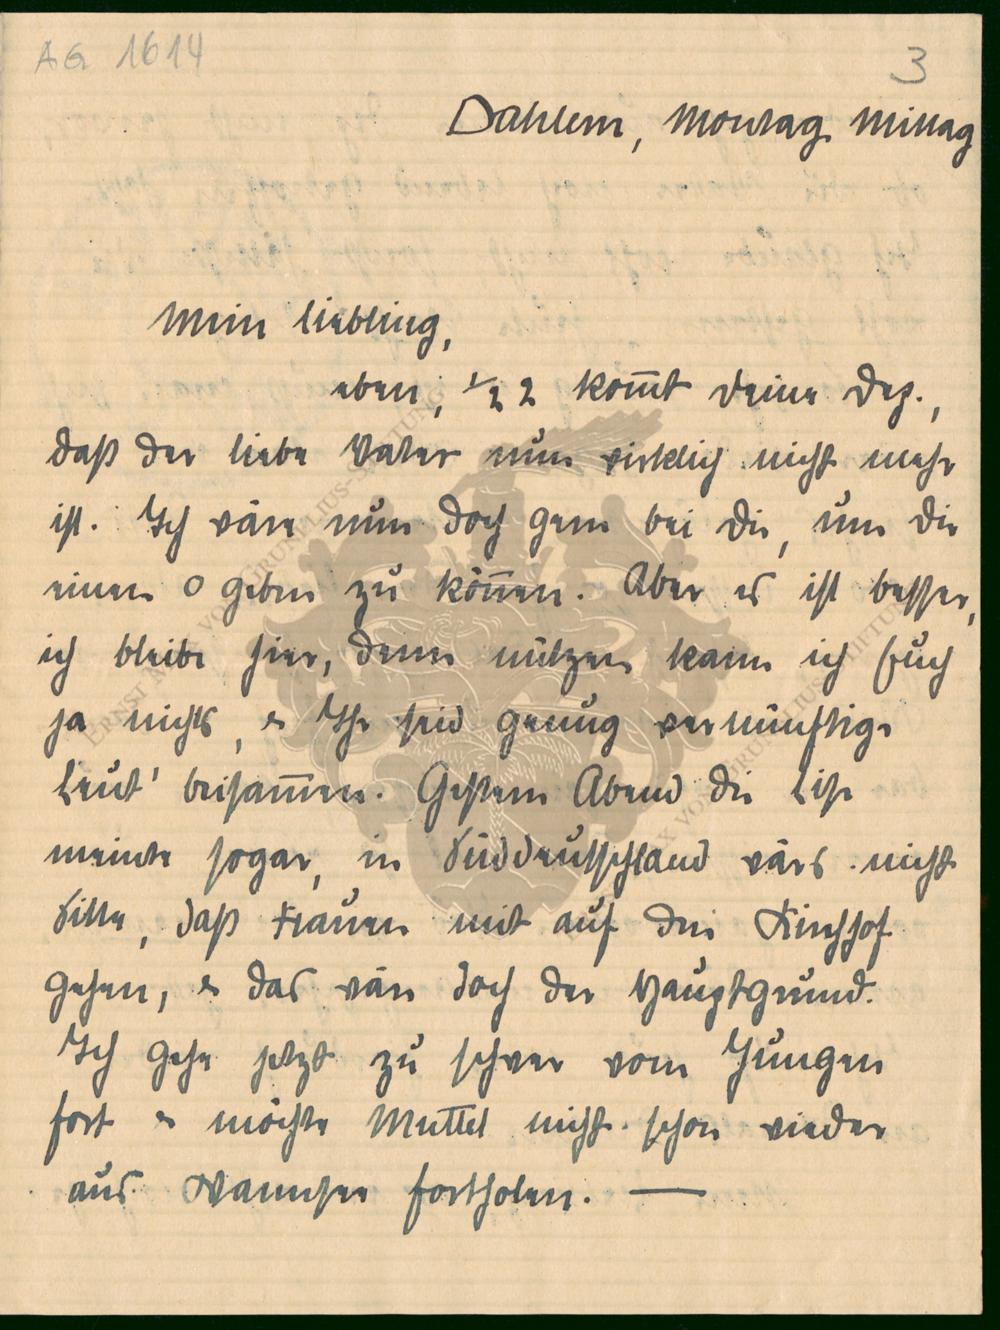 AG 1614
3
Dahlem, Montag Mittag
Mein Liebling,
eben, 1/2 2 kom̅t deine Dep.,
daß der liebe Vater nun wirklich nicht mehr
ist. Ich wäre nun doch gern bei dir, um dir
einen o geben zu kön̅en. Aber es ist besser,
ich bleibe hier, denn nützen kann ich Euch
ja nichts, & Ihr seid genug vernünftige
Leut' beisam̅en. Gestern Abend die Lise
meinte sogar, in Süddeutschland wärs nicht
Sitte, daß Frauen mit auf den Kirchhof
gehen, & das wär doch der Hauptgrund.
Ich gehe jetzt zu schwer vom Jungen
fort & möchte Muttel nicht schon wieder
aus Wannsee fortholen. —
ERNST MAX VON GRUNELIUS-STIFTUNG